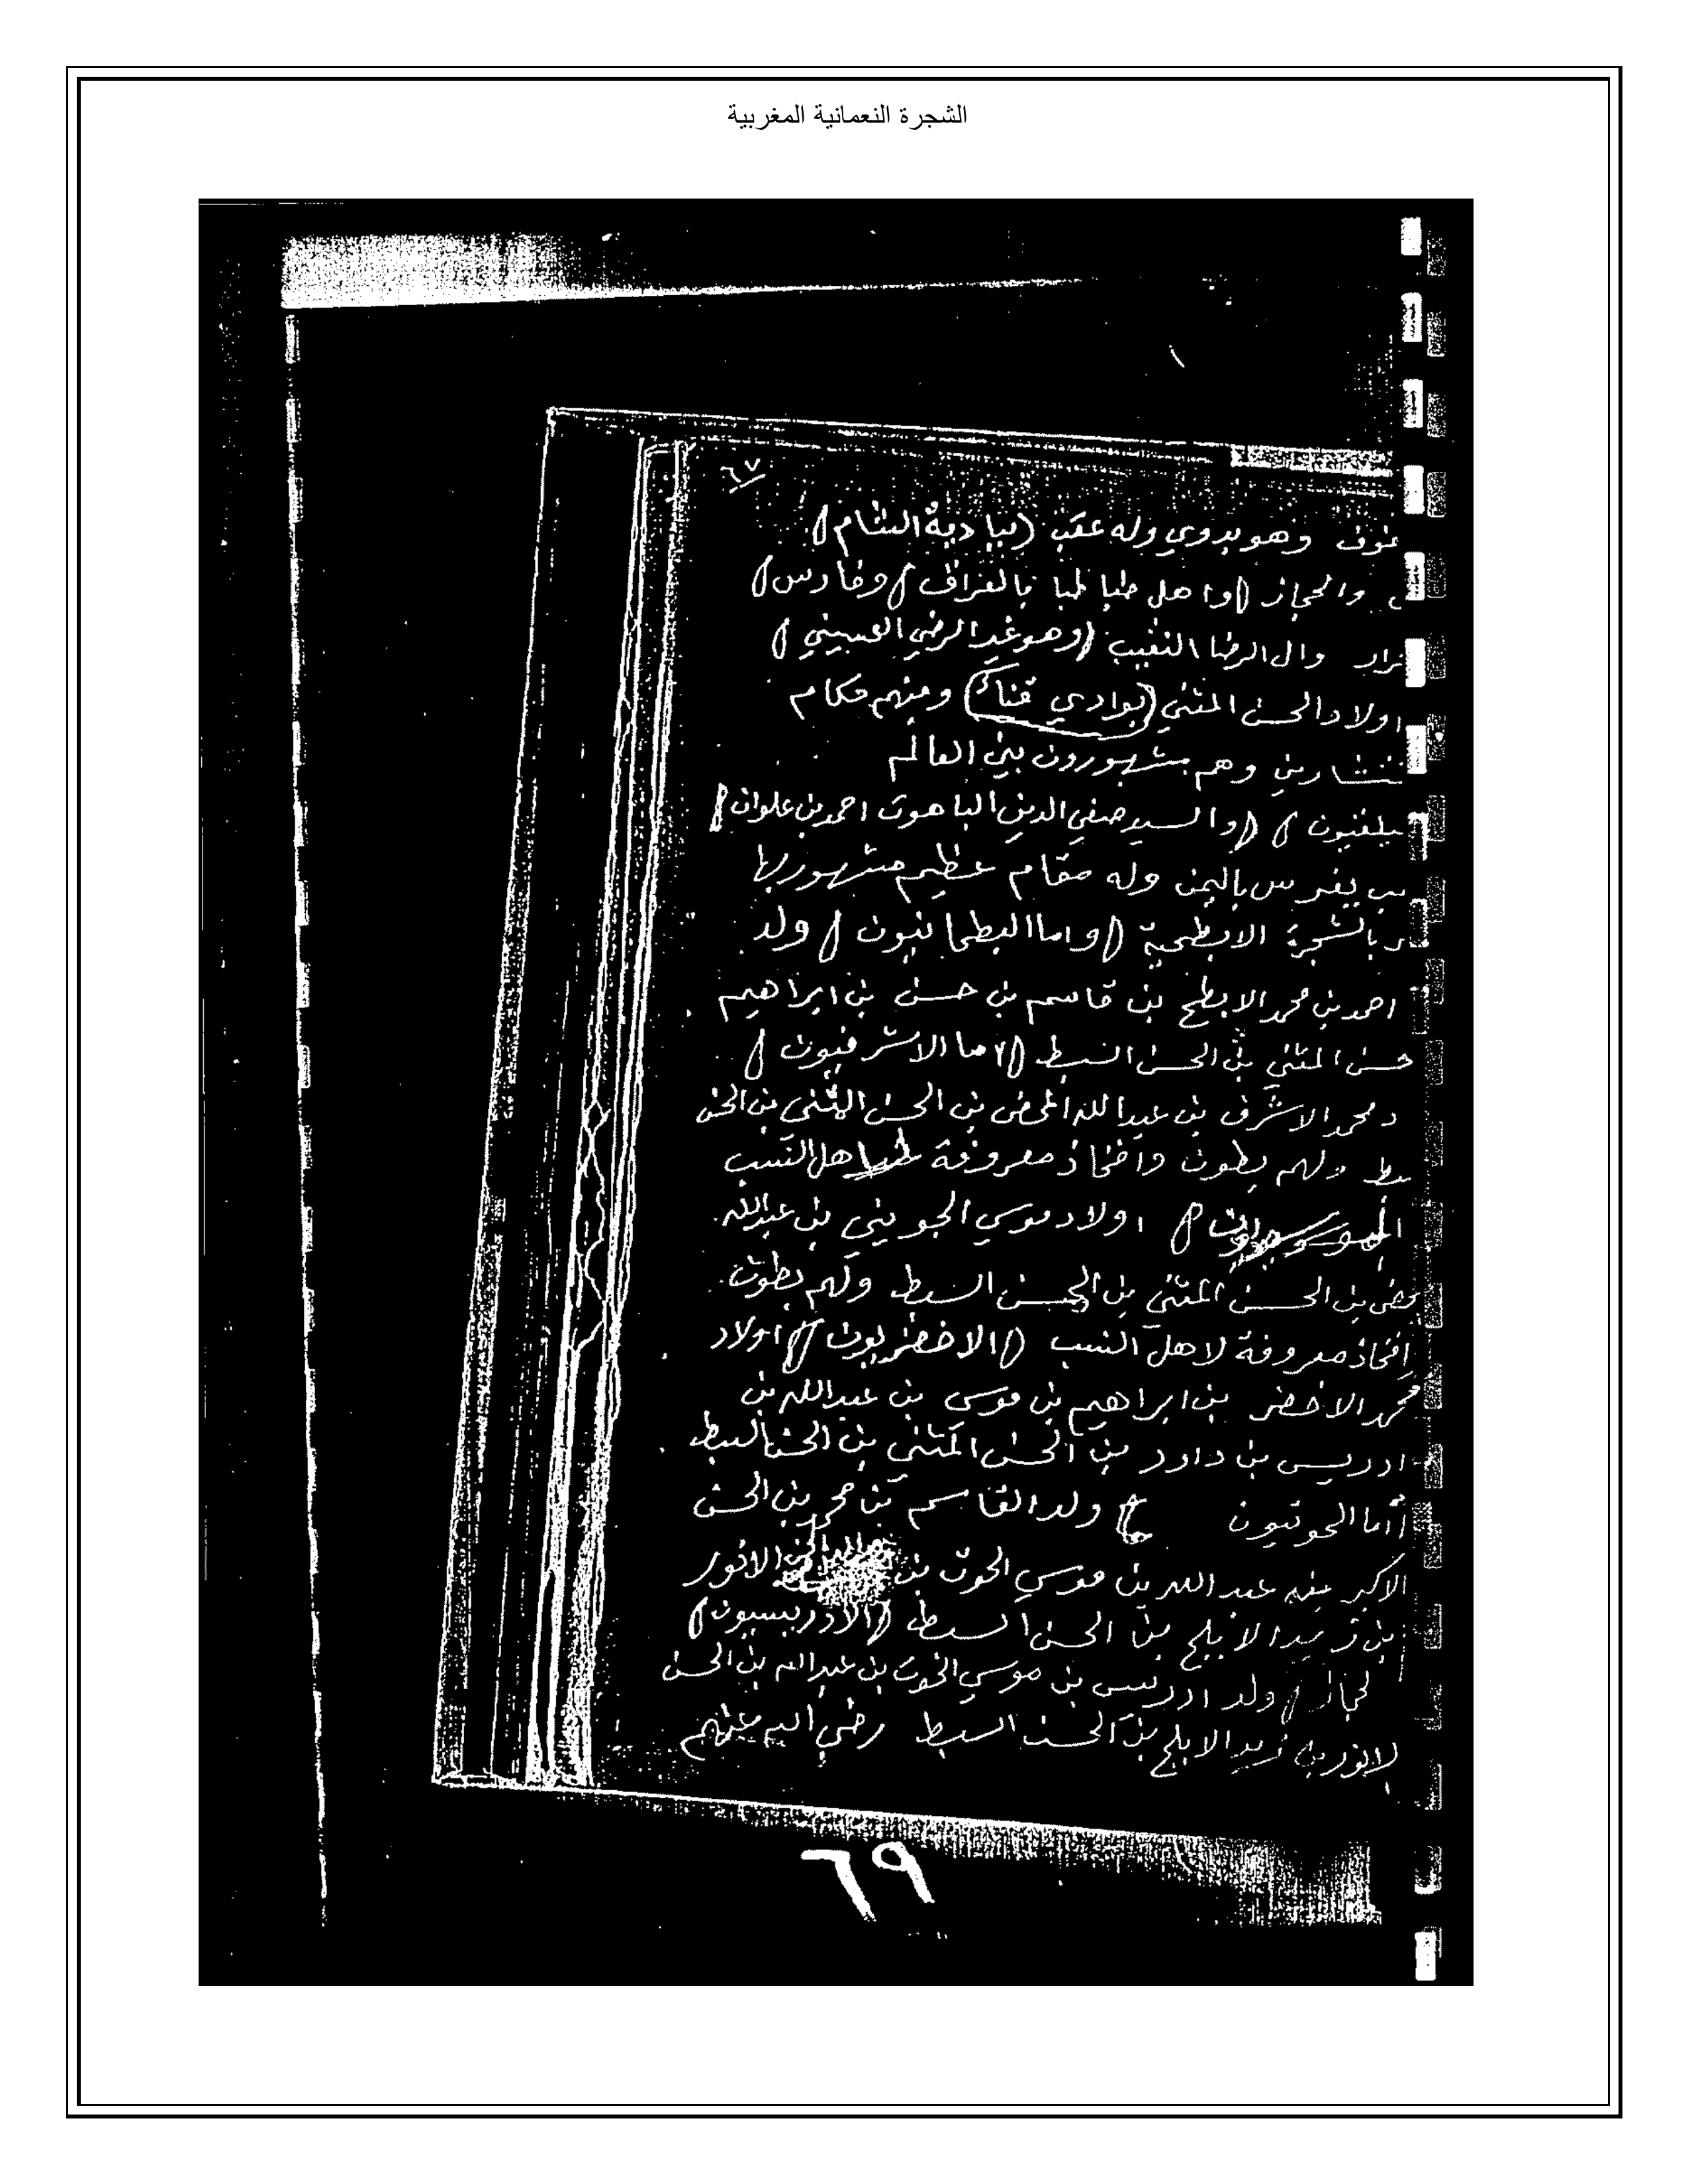 الشجرة النعمانية المغربية
٦٧
وهو بدوي وله عقب (ببادية الشام)
والحجاز (واهل طبا طبا بالعراق) وفارس)
وال الرضا النقيب (وهو الرضي)
اولاد الحسن المثني (بوادي قناك) ومنهم حكام
وهم مشهورون بين العالم
(والسيد صفي الدين الباهوت احمد بن علوان)
بيفرس باليمن وله مقام عظيم مشهور بها
بالشجرة الابطحية (واما البطحانيون) ولد
احمد بن محمد الابطح بن قاسم بن حسن بن ابراهيم
حسن المثني بن الحسن السبط (اما الاشرفيون)
د محمد الاشرف بن عبد الله المحض بن الحسن المثنى بن الحسن
بط ولهم بطون وافخاذ معروفة اهل النسب
) اولاد موسي الجويني بن عبد الله
حض بن الحسن المثني بن الحسن السبط ولهم بطون
افخاذ معروفة لاهل النسب (الاخضريون) اولاد
محمد الاخضر بن ابراهيم بن موسى بن عبد الله بن
ادريس بن داود بن الحسن المثنى بن الحسن السبط
اما الحوتيون ولد القاسم بن محمد بن الحسن
الاكبر عبد الله بن موسي الحوت بن الانور
بن زيد الابلج بن الحسن السبط (الادريسيون)
ولد ادريس بن موسي الحوت بن عبد الله بن الحسن
الانور بن زيد الابلج بن الحسن السبط رضي الله عنهم
٦٩